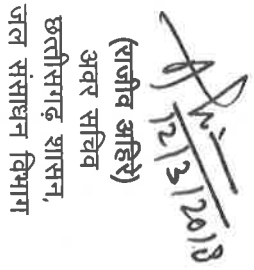 12/3/2018
(राजीव अहिरे)
अवर सचिव
छत्तीसगढ़ शासन,
जल संसाधन विभाग